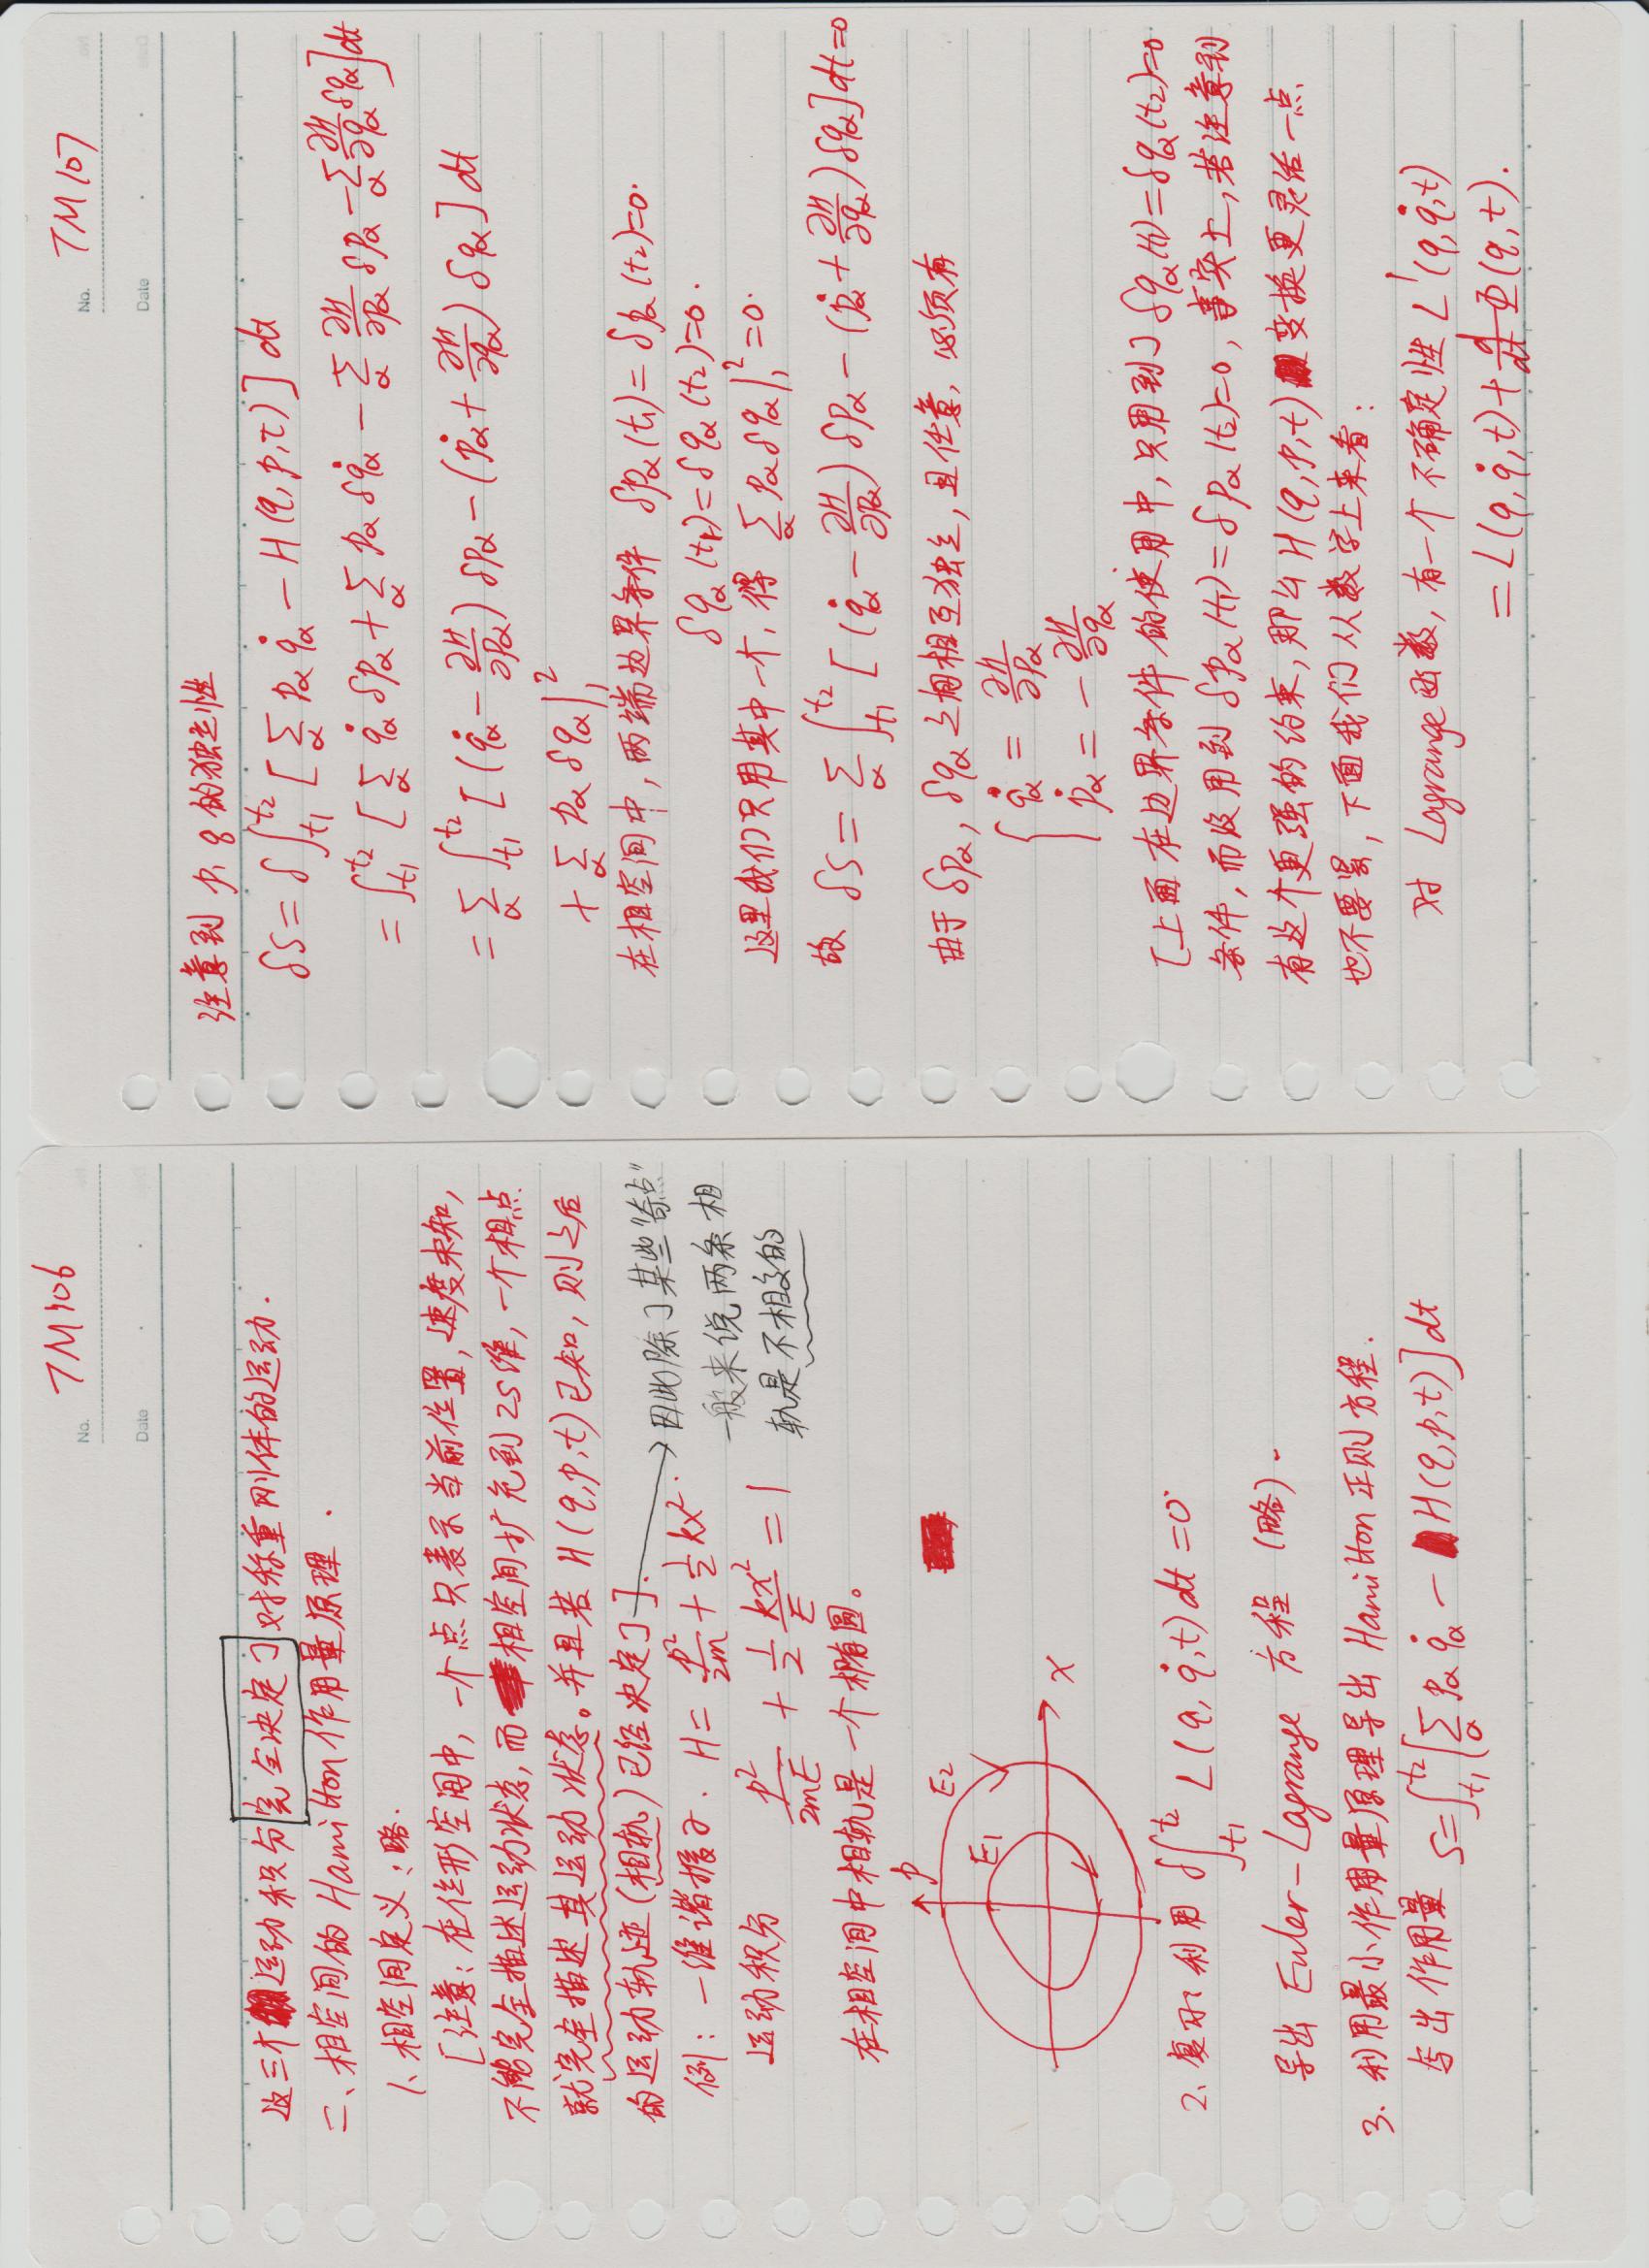 TM106
No.
Date
这三个运动积分完全决定了对称重刚体的运动.
二、相空间的 Hamilton 作用量原理.
1、相空间定义:略.
[注意:在位形空间中,一个点只表示当前位置,速度未知,
不能完全描述运动状态,而相空间扩充到2S维,一个相点
就完全描述其运动状态。并且若 H(q,p,t)已知,则之后
的运动轨迹(相轨)已经决定了].
因此除了某些"奇点"
一般来说两条相
轨是不相交的
例:一维谐振子. H = p²/2m + ½kx².
运动积分 p²/2mE + 1/2 kx²/E = 1
在相空间中相轨是一个椭圆。
p
E₂
E₁
x
2、复习:利用 δ∫_{t₁}^{t₂} L(q, q̇, t) dt = 0
导出 Euler-Lagrange 方程 (略).
3. 利用最小作用量原理导出 Hamilton 正则方程.
写出作用量 S=∫_{t₁}^{t₂} [∑_α p_α q̇_α − H(q,p,t)] dt
TM107
No.
Date
注意到 p, q 的独立性
δS = δ∫_{t₁}^{t₂} [∑_α p_α q̇_α − H(q,p,t)] dt
= ∫_{t₁}^{t₂} [∑_α q̇_α δp_α + ∑_α p_α δq̇_α − ∑_α ∂H/∂p_α δp_α − ∑_α ∂H/∂q_α δq_α] dt
= ∑_α ∫_{t₁}^{t₂} [(q̇_α − ∂H/∂p_α) δp_α − (ṗ_α + ∂H/∂q_α) δq_α] dt
+ ∑_α p_α δq_α |₁²
在相空间中,两端边界条件 δp_α(t₁) = δp_α(t₂)=0.
δq_α(t₁)=δq_α(t₂)=0.
这里我们只用其中一个,得 ∑_α p_α δq_α |₁² = 0.
故 δS = ∑_α ∫_{t₁}^{t₂} [(q̇_α − ∂H/∂p_α) δp_α − (ṗ_α + ∂H/∂q_α) δq_α] dt = 0
由于 δp_α, δq_α 之间相互独立,且任意,必须有
{ q̇_α = ∂H/∂p_α
ṗ_α = − ∂H/∂q_α.
[上面在边界条件的使用中,只用到了 δq_α(t₁)=δq_α(t₂)=0
条件,而没用到 δp_α(t₁)=δp_α(t₂)=0, 事实上,若注意到
有这个更强的约束,那么 H(q,p,t) 变换更灵活一点
也不要紧,下面我们从数学上来看:
对 Lagrange 函数,有一个不确定性 L'(q,q̇,t)
= L(q,q̇,t) + d/dt Φ(q,t).